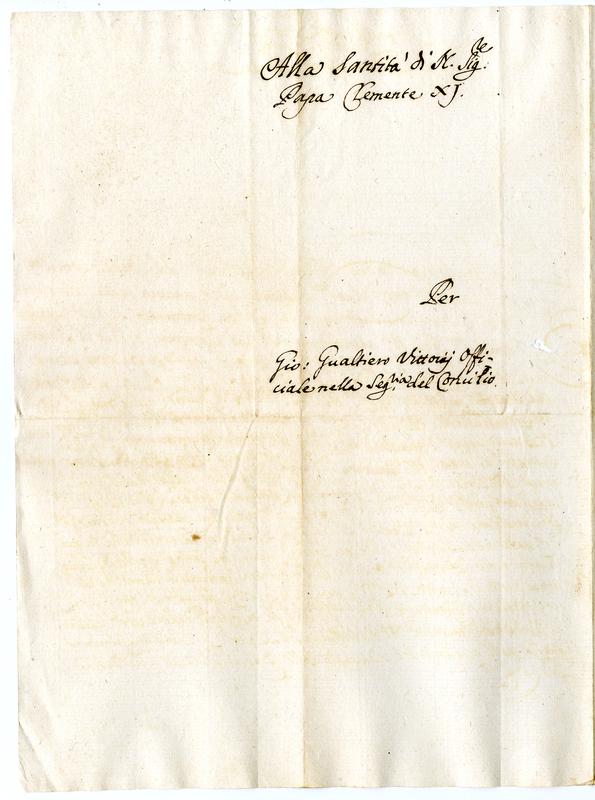 Alla Santità di N. Sig.re
Papa Clemente XI.
Per
Gio: Gualtiero Vittorij Offi-
ciale nella Seg.ria del Concilio.